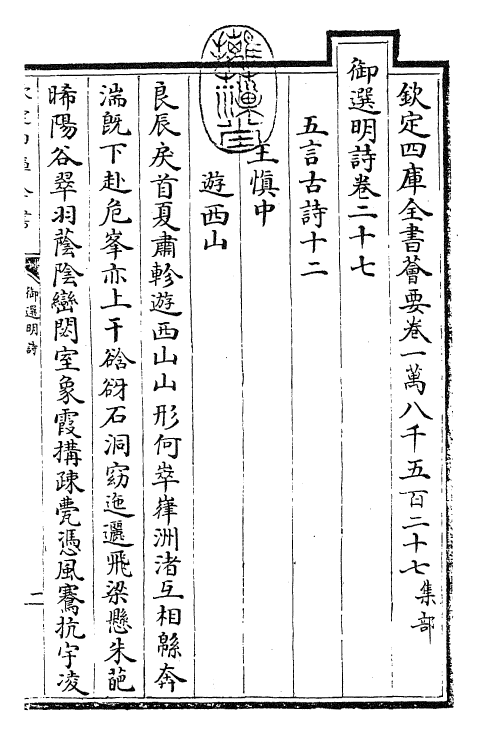 欽定四庫全書薈要卷一萬八千五百二十七 集部
御選明詩卷二十七
五言古詩十二
王慎中
遊西山
良辰戾首夏肅軫遊西山山形何崒嵂洲渚互相緜奔
湍旣下赴危峯亦上干谽谺石洞窈迤邐飛梁懸朱葩
晞陽谷翠羽蔭陰巒閟室象霞搆疎甍憑風騫抗宇凌
御選明詩